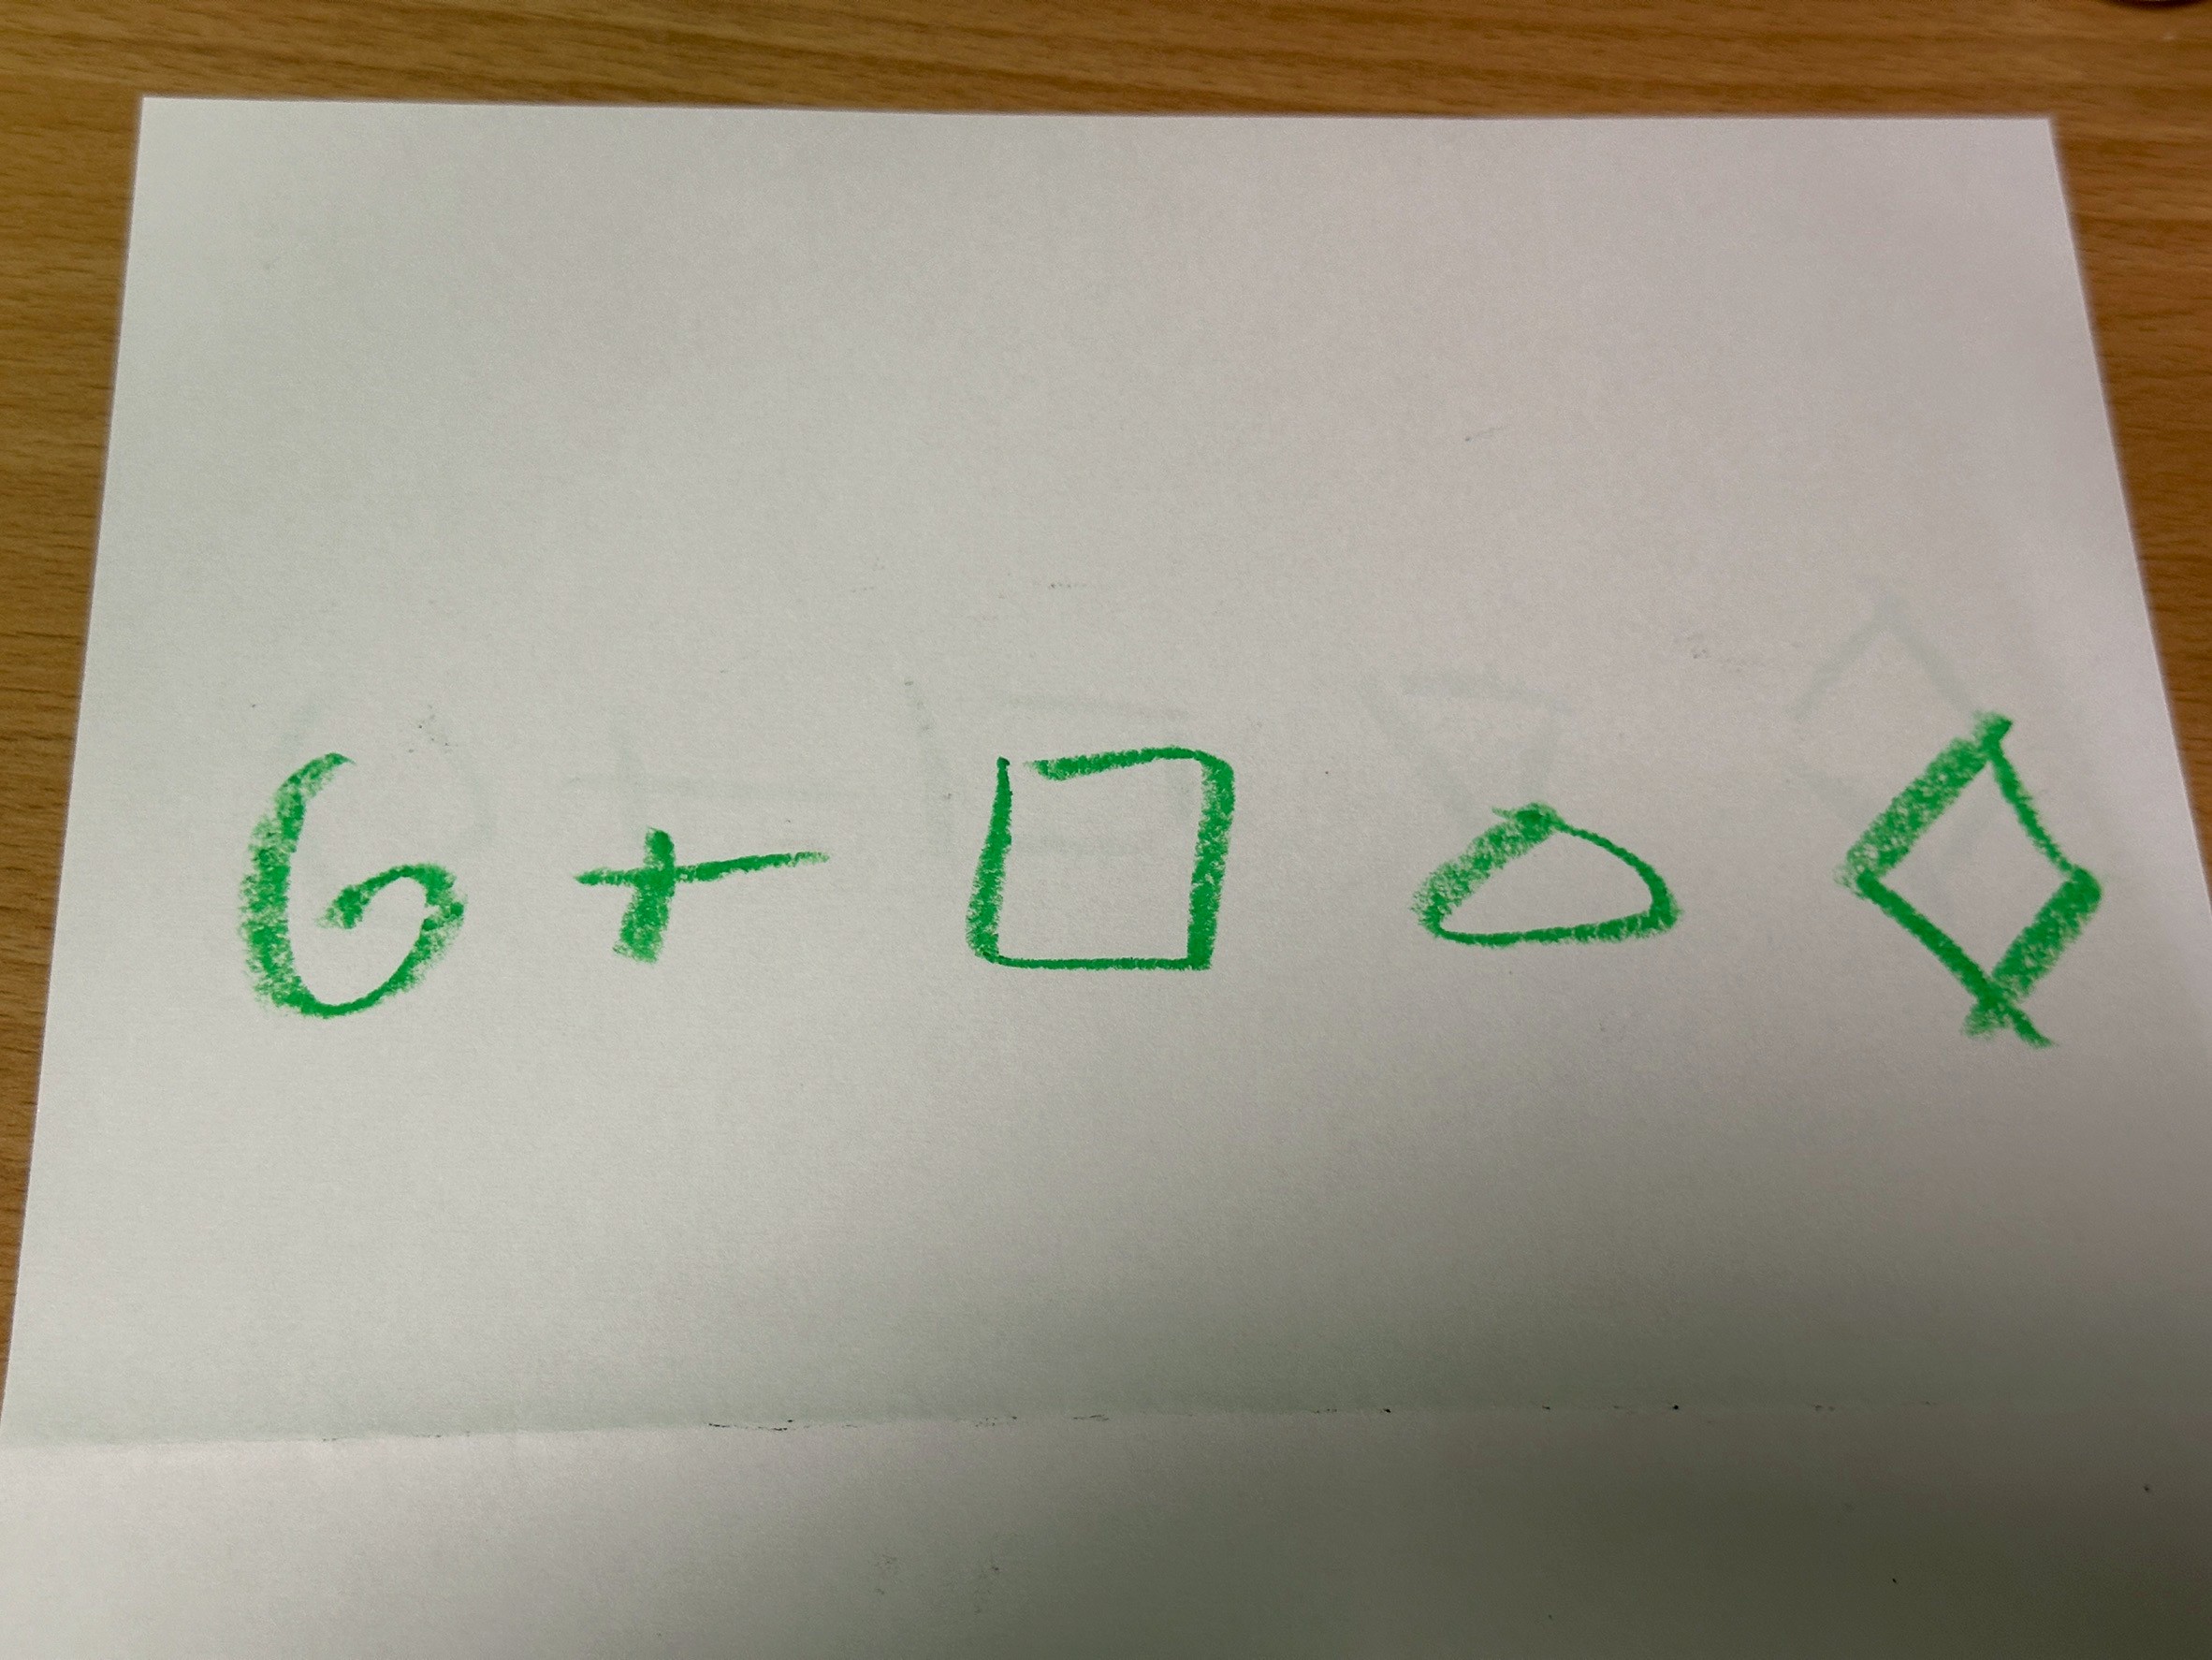 6 + □ △ ◇